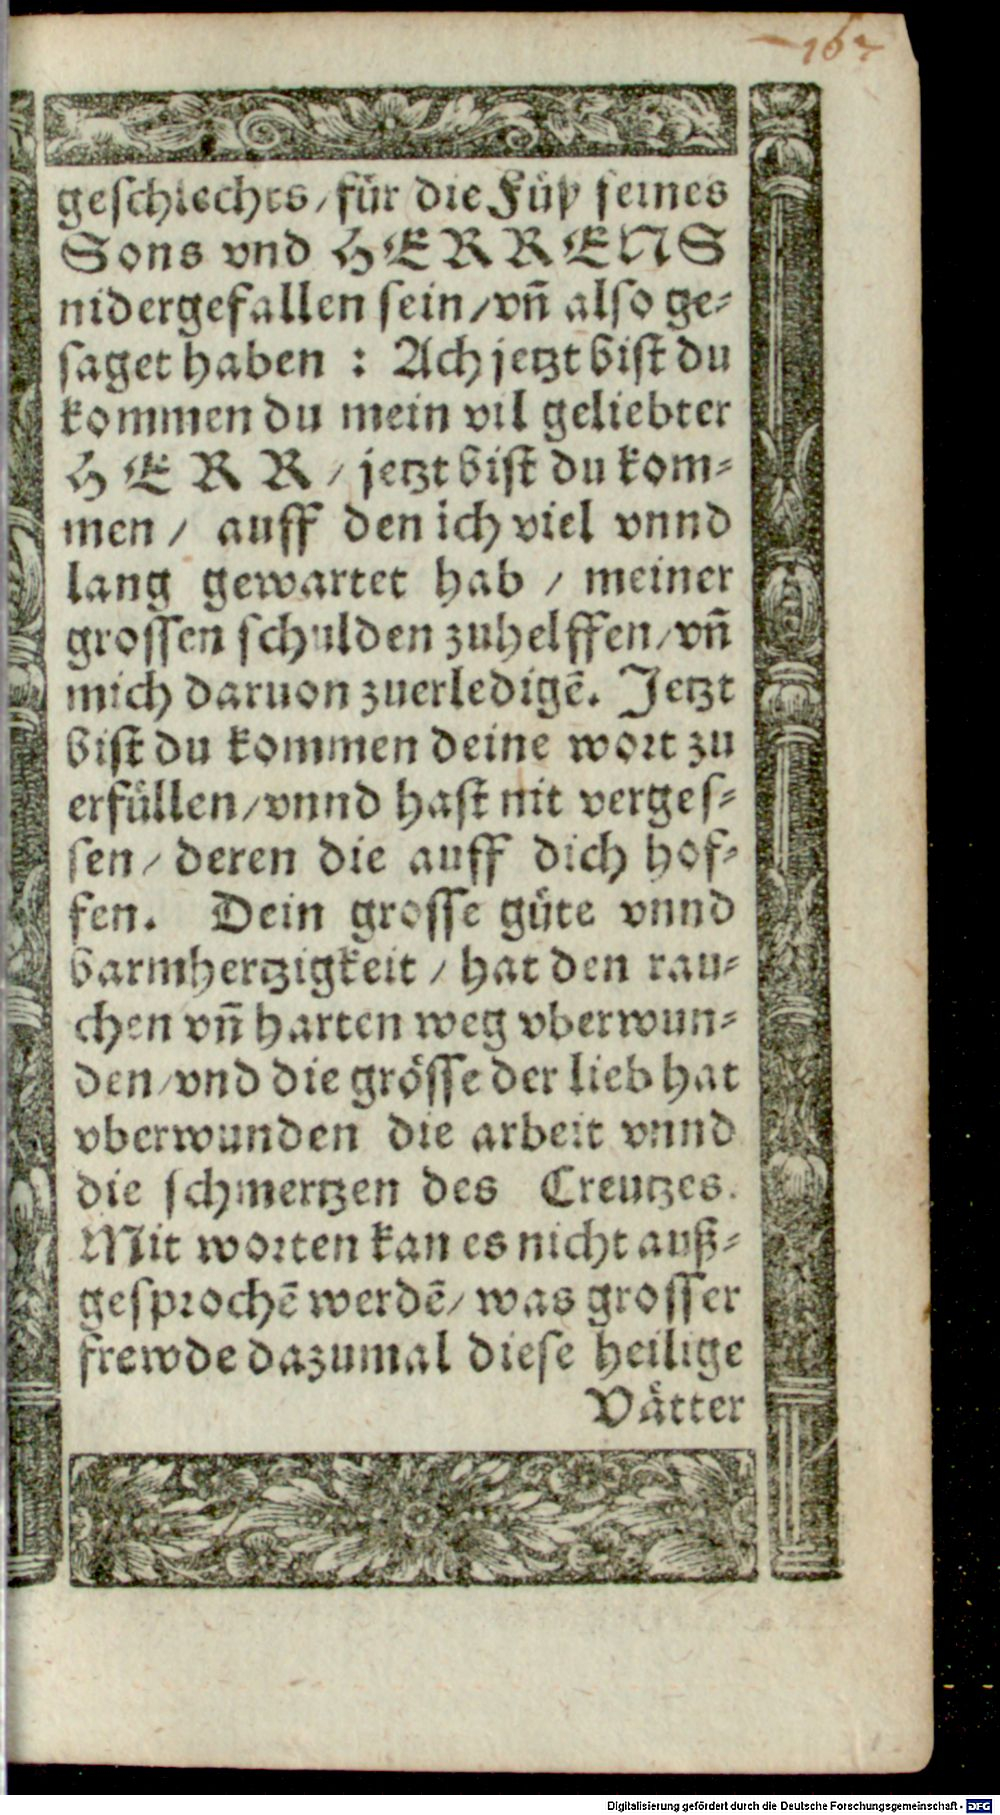 167
geſchlechts/für die Füß ſeines
Sons vnd HERRENS
nidergefallen ſein/vñ alſo ge⸗
ſaget haben : Ach jetzt biſt du
kommen du mein vil geliebter
HERR/ jetzt biſt du kom⸗
men/ auff den ich viel vnnd
lang gewartet hab / meiner
groſſen ſchulden zuhelffen/vñ
mich daruon zuerledigē. Jetzt
biſt du kommen deine wort zu
erfüllen/vnnd haſt nit vergeſ⸗
ſen/ deren die auff dich hof⸗
fen. Dein groſſe güte vnnd
barmhertzigkeit / hat den rau⸗
chen vñ harten weg vberwun⸗
den/vnd die gröſſe der lieb hat
vberwunden die arbeit vnnd
die ſchmertzen des Creutzes.
Mit worten kan es nicht auß⸗
geſprochē werdē/ was groſſer
frewde dazumal dieſe heilige
Vätter
Digitalisierung gefördert durch die Deutsche Forschungsgemeinschaft - DFG